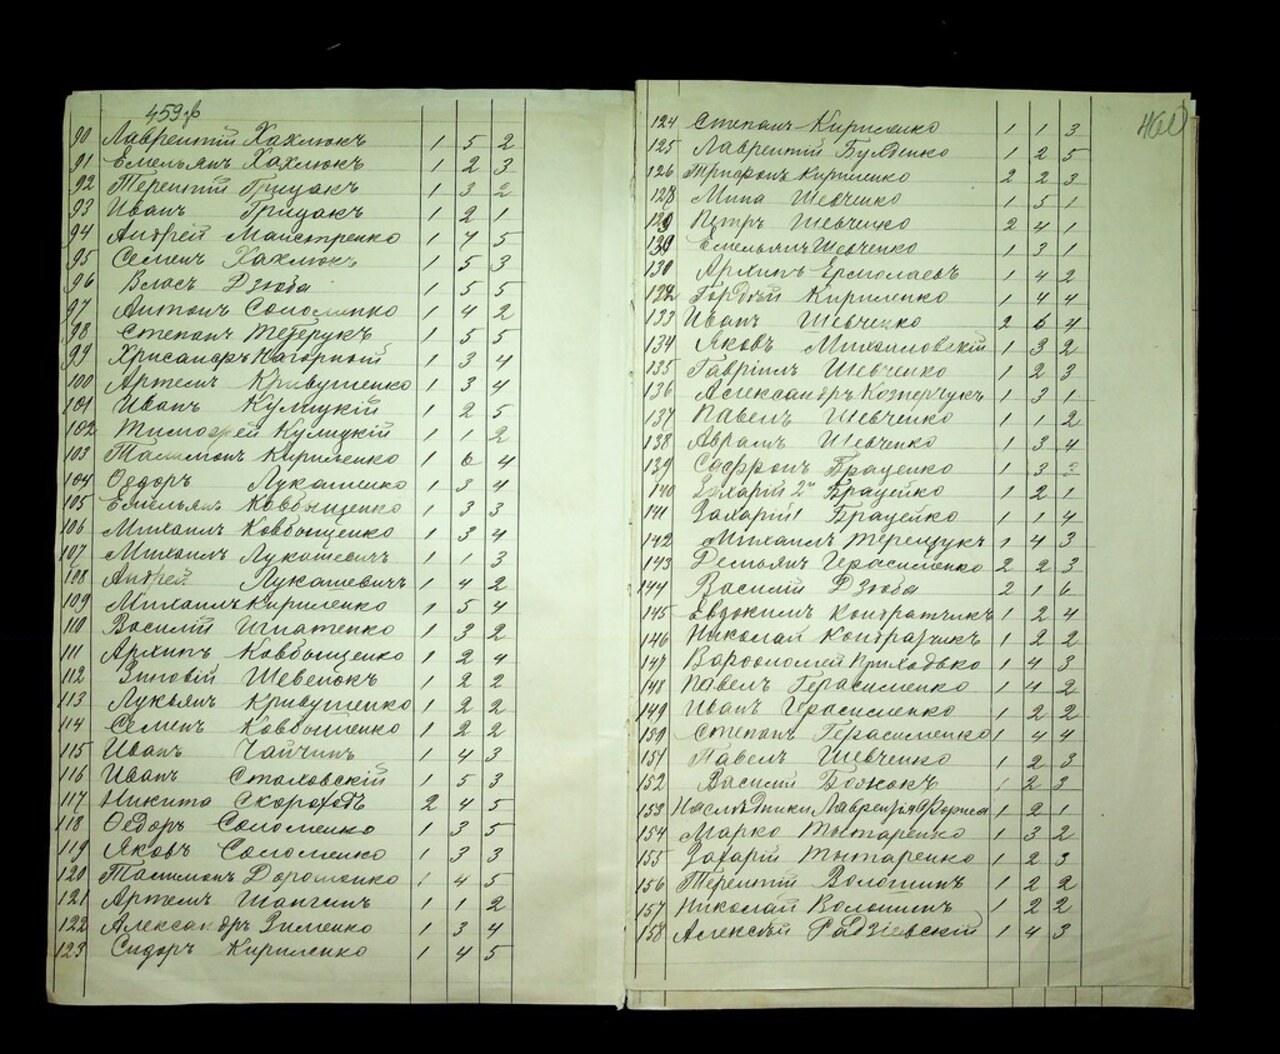 459 об
90 Лаврентій Хахлюкъ 1 5 2
91 Емельянъ Хахлюкъ 1 2 3
92 Терентій Грицакъ 1 3 2
93 Иванъ Грицакъ 1 2 1
94 Андрей Маистренко 1 4 5
95 Семенъ Хахлюкъ 1 5 3
96 Власъ Дзюба 1 5 5
97 Антонъ Соломенко 1 4 2
98 Степанъ Тетерукъ 1 5 5
99 Хрисанфъ Нагорный 1 3 4
100 Артемъ Кривушенко 1 3 4
101 Иванъ Кулицкій 1 2 5
102 Тимофей Кулицкій 1 1 2
103 Талимонъ Кириленко 1 6 4
104 Ѳедоръ Лукашенко 1 3 4
105 Емельянъ Ковбощенко 1 3 3
106 Михаилъ Ковбощенко 1 3 4
107 Михаилъ 1 1 3
108 Андрей Лукашевичъ 1 4 2
109 Михаилъ Кириленко 1 5 4
110 Василій Игнатенко 1 3 2
111 Архипъ Ковбощенко 1 2 4
112 Зиновій Шевелюкъ 1 2 2
113 Лукьянъ Кривушенко 1 2 2
114 Семенъ Ковбошенко 1 2 2
115 Иванъ Чайчинъ 1 4 3
116 Иванъ Стаховскій 1 5 3
117 Никита Скороходъ 2 4 5
118 Ѳедоръ Соломенко 1 3 5
119 Яковъ Соломенко 1 3 3
120 Талимонъ Дорошенко 1 4 5
121 Артемъ 1 1 2
122 Александръ Зименко 1 3 4
123 Сидоръ Кириленко 1 4 5
460
124 Степанъ Кириленко 1 1 3
125 Лаврентій Булденко 1 2 5
126 Трифонъ Кириленко 2 2 3
128 Мина Шевченко 1 5 1
129 Петръ Шевченко 2 4 1
130 Емельянъ Шевченко 1 3 1
130 Архипъ Ермолаевъ 1 4 2
132 Гордѣй Кириленко 1 4 4
133 Иванъ Шевченко 2 6 4
134 Яковъ Михаиловскій 1 3 2
135 Гавріилъ Шевченко 1 2 3
136 Александръ Козперчукъ 1 3 1
137 Павелъ Шевченко 1 1 2
138 Аврамъ Шевченко 1 3 4
139 Сафронъ Браценко 1 3 2
140 Захарій 2й Брацейко 1 2 1
141 Захарій 1 Брацейко 1 1 4
142 Михаилъ Терещукъ 1 4 3
143 Демьянъ Герасименко 2 2 3
144 Василій Дзюба 2 1 6
145 Евдокимъ Контратчикъ 1 2 4
146 Николай Контратчикъ 1 2 2
147 Варѳоломей Приходько 1 4 3
148 Павелъ Герасименко 1 4 2
149 Иванъ Герасименко 1 2 2
150 Степанъ Герасименко 1 4 4
151 Павелъ Шевченко 1 2 3
152 Василій Божокъ 1 2 3
153 Наслѣдники Лаврентія Фориса 1 2 1
154 Марко Тытаренко 1 3 2
155 Захарій Тытаренко 1 2 3
156 Терентій Волошинъ 1 2 2
157 Николай Волошинъ 1 2 2
158 Алексѣй Радзіевскій 1 4 3